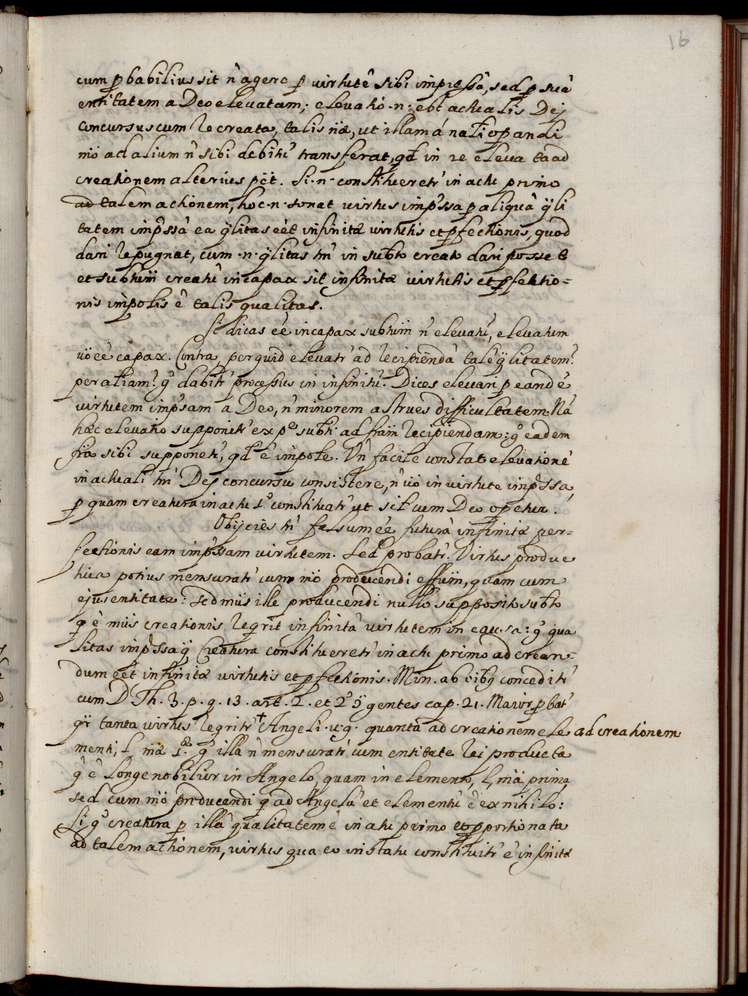 16
cum p babilius sit ñ agere p uirtutē sibi impressā, sed p suā
entitatem a Deo eleuatam; eleuatio .n. est actualis Dej
concursus cum re creata, talis nāe, ut illam á nāli opandi
mō ad alium ñ sibi debitū transferat, qđ in re eleuata ad
creationem alterius pēt. Si .n. constitueretr in actu primo
ad talem actionem, hoc .n. sonat uirtus impssa p aliquā qli
tatem impssā ea qlitas eēt infinitæ uirtutis et pfectionis, quod
dari repugnat, cum .n. qlitas tm̄ in subto creato dari posset
et subtum creatū incapax sit infinitæ uirtutis et pfectio-
nis impolis ē talis qualitas.
Si dicas eē incapax subtum ñ eleuatū, eleuatum
uō eē capax. Contra, per quid eleuatr ad recipiendā talē qlitatem?
per aliam? gº dabitr processus in infinitū. Dices eleuari p eandē
uirtutem impsam a Deo, ñ minorem astrues difficultatem. Nā
hæc eleuatio supponitr ex pe subti ad fram recipiendam: gº eadem
fra sibi supponetr, qđ ē impole. Vn̄ facile constat eleuationē
in actuali tm̄ Dej concursu consistere, ñ uō in uirtute impssa,
p quam creatura in actu 1º constituatr ut sit cum Deo opetur.
Obijcies tn̄ falsum eē futurā infinitæ per-
fectionis eam impssam uirtutem. Sed probatr. Virtus produc
tiua potius mensuratr cum mō producendi effum, quam cum
ejus entitate: sed mús ille producendi nullo supposito subto
q ē mús creationis reqrit infinitā uirtutem in causa: gº qua
litas impssa q creatura constitueretr in actu primo ad crean-
dum eēt infinitæ uirtutis et pfectionis. Min. ab oibq conceditr
cum D. Th. 3. p. q. 13. art. 2. et 2º ɔ̄ gentes cap. 21. Maior pbatr
qr tanta uirtus reqritr ad creationem Angeli u.g. quanta ad creationem ele
menti, l. mā 1æ. gº illa ñ mensuratr cum entitate rei producta
q ē longe nobilior in Angelo, quam in elemento, l. mā prima,
sed cum mō producendi q ad Angelū et elementū ē ex nihilo:
Si gº creatura p illā qualitatem ē in actu primo et pportionata
ad talem actionem, uirtus qua eo in statu constituitr ē infinitæ